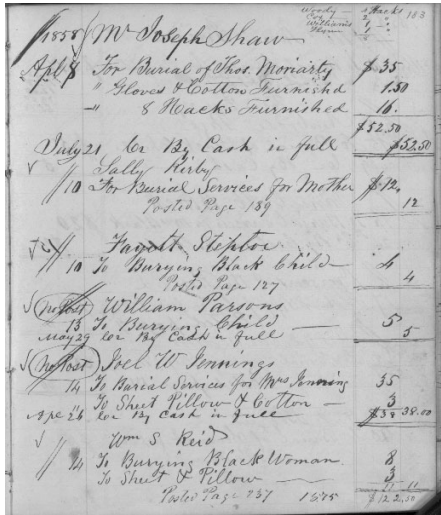 Woody — 4 Hacks 183
Cox 2 "
Williams 1 "
1 "
1858 Mr Joseph Shaw
Apl 8 For Burial of Thos. Moriarty $35
" Gloves & Cotton Furnishd 1.50
" 8 Hacks Furnished 16.
$52.50
July 21 Cr By Cash in full $52.50
Sally Kirby
" 10 For Burial Services for Mother $12.
Posted Page 189 12
Fayett Steptoe
" 10 To Burying Black Child — 4
Posted Page 127 4
No Post William Parsons
13 To Burying Child — 5
May 29 Cr By Cash in full — 5
No Post Joel W Jennings
14 To Burial Services for Mrs Jenning 35
To Sheet Pillow & Cotton — 3
Apl 26 Cr By Cash in full — $38 38.00
Wm S Reid
" 14 To Burying Black Woman. 8
To Sheet & Pillow — 3
11 11
Posted Page 237 $122.50